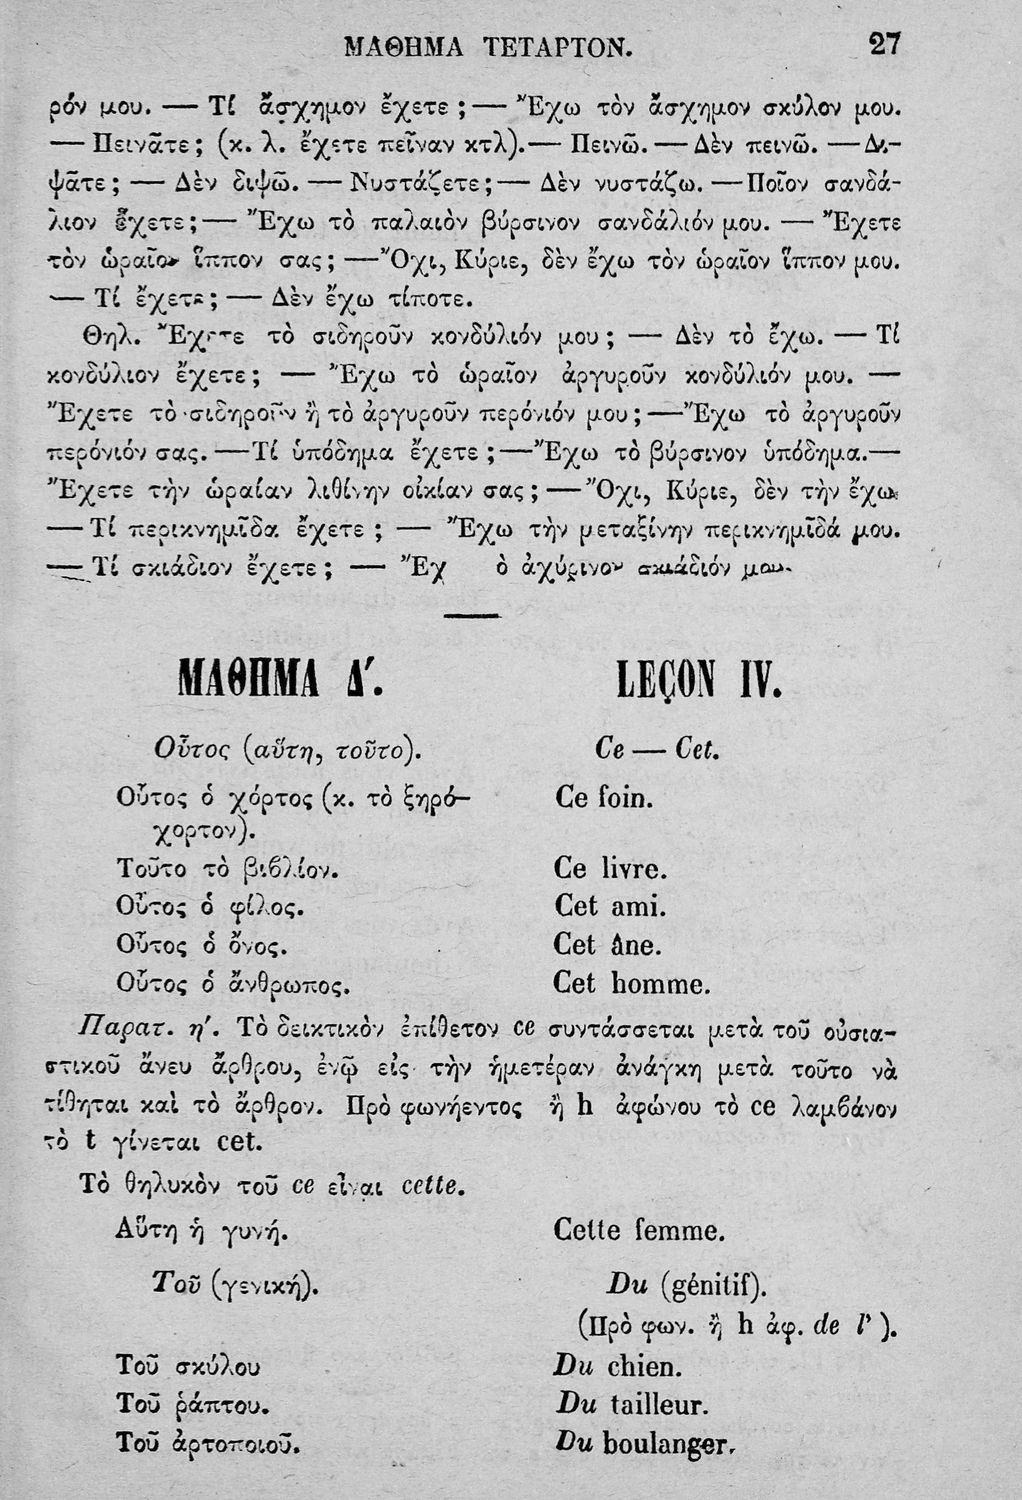 ΜΑΘΗΜΑ ΤΕΤΑΡΤΟΝ. 27
ρόν μου. — Τί ἄσχημον ἔχετε ; — Ἔχω τὸν ἄσχημον σκύλον μου.
— Πεινᾶτε ; (κ. λ. ἔχετε πεῖναν κτλ). — Πεινῶ. — Δὲν πεινῶ. — Δι-
ψᾶτε ; — Δὲν διψῶ. — Νυστάζετε ; — Δὲν νυστάζω. — Ποῖον σανδά-
λιον ἔχετε ; — Ἔχω τὸ παλαιὸν βύρσινον σανδάλιόν μου. — Ἔχετε
τὸν ὡραῖον ἵππον σας ; — Ὄχι, Κύριε, δὲν ἔχω τὸν ὡραῖον ἵππον μου.
— Τί ἔχετε ; — Δὲν ἔχω τίποτε.
Θηλ. Ἔχετε τὸ σιδηροῦν κονδύλιόν μου ; — Δὲν τὸ ἔχω. — Τί
κονδύλιον ἔχετε ; — Ἔχω τὸ ὡραῖον ἀργυροῦν κονδύλιόν μου. —
Ἔχετε τὸ σιδηροῦν ἢ τὸ ἀργυροῦν περόνιόν μου ; — Ἔχω τὸ ἀργυροῦν
περόνιόν σας. — Τί ὑπόδημα ἔχετε ; — Ἔχω τὸ βύρσινον ὑπόδημα. —
Ἔχετε τὴν ὡραίαν λιθίνην οἰκίαν σας ; — Ὄχι, Κύριε, δὲν τὴν ἔχω
— Τί περικνημῖδα ἔχετε ; — Ἔχω τὴν μεταξίνην περικνημῖδά μου.
— Τί σκιάδιον ἔχετε ; — Ἔχ ὸ ἀχύρινον σκιάδιόν μου.
ΜΑΘΗΜΑ Δ΄. LEÇON IV.
Οὗτος (αὕτη, τοῦτο). Ce — Cet.
Οὗτος ὁ χόρτος (κ. τὸ ξηρό- Ce foin.
χορτον).
Τοῦτο τὸ βιβλίον. Ce livre.
Οὗτος ὁ φίλος. Cet ami.
Οὗτος ὁ ὄνος. Cet âne.
Οὗτος ὁ ἄνθρωπος. Cet homme.
Παρατ. η΄. Τὸ δεικτικὸν ἐπίθετον ce συντάσσεται μετὰ τοῦ οὐσια-
στικοῦ ἄνευ ἄρθρου, ἐνῷ εἰς τὴν ἡμετέραν ἀνάγκη μετὰ τοῦτο νὰ
τίθηται καὶ τὸ ἄρθρον. Πρὸ φωνήεντος ἢ h ἀφώνου τὸ ce λαμβάνον
τὸ t γίνεται cet.
Τὸ θηλυκὸν τοῦ ce εἶναι cette.
Αὕτη ἡ γυνή. Cette femme.
Τοῦ (γενική). Du (génitif).
(Πρὸ φων. ἢ h ἀφ. de l').
Τοῦ σκύλου Du chien.
Τοῦ ῥάπτου. Du tailleur.
Τοῦ ἀρτοποιοῦ. Du boulanger.